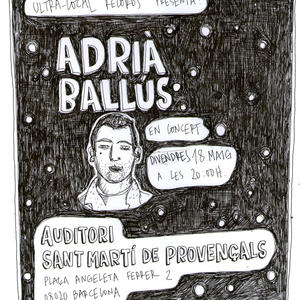 ULTRA-LOCAL RECORDS PRESENTA
ADRIÀ
BALLÚS
EN CONCERT
DIVENDRES 18 MAIG
A LES 20:00H
AUDITORI
SANT MARTÍ DE PROVENÇALS
PLAÇA ANGELETA FERRER 2
08020 BARCELONA